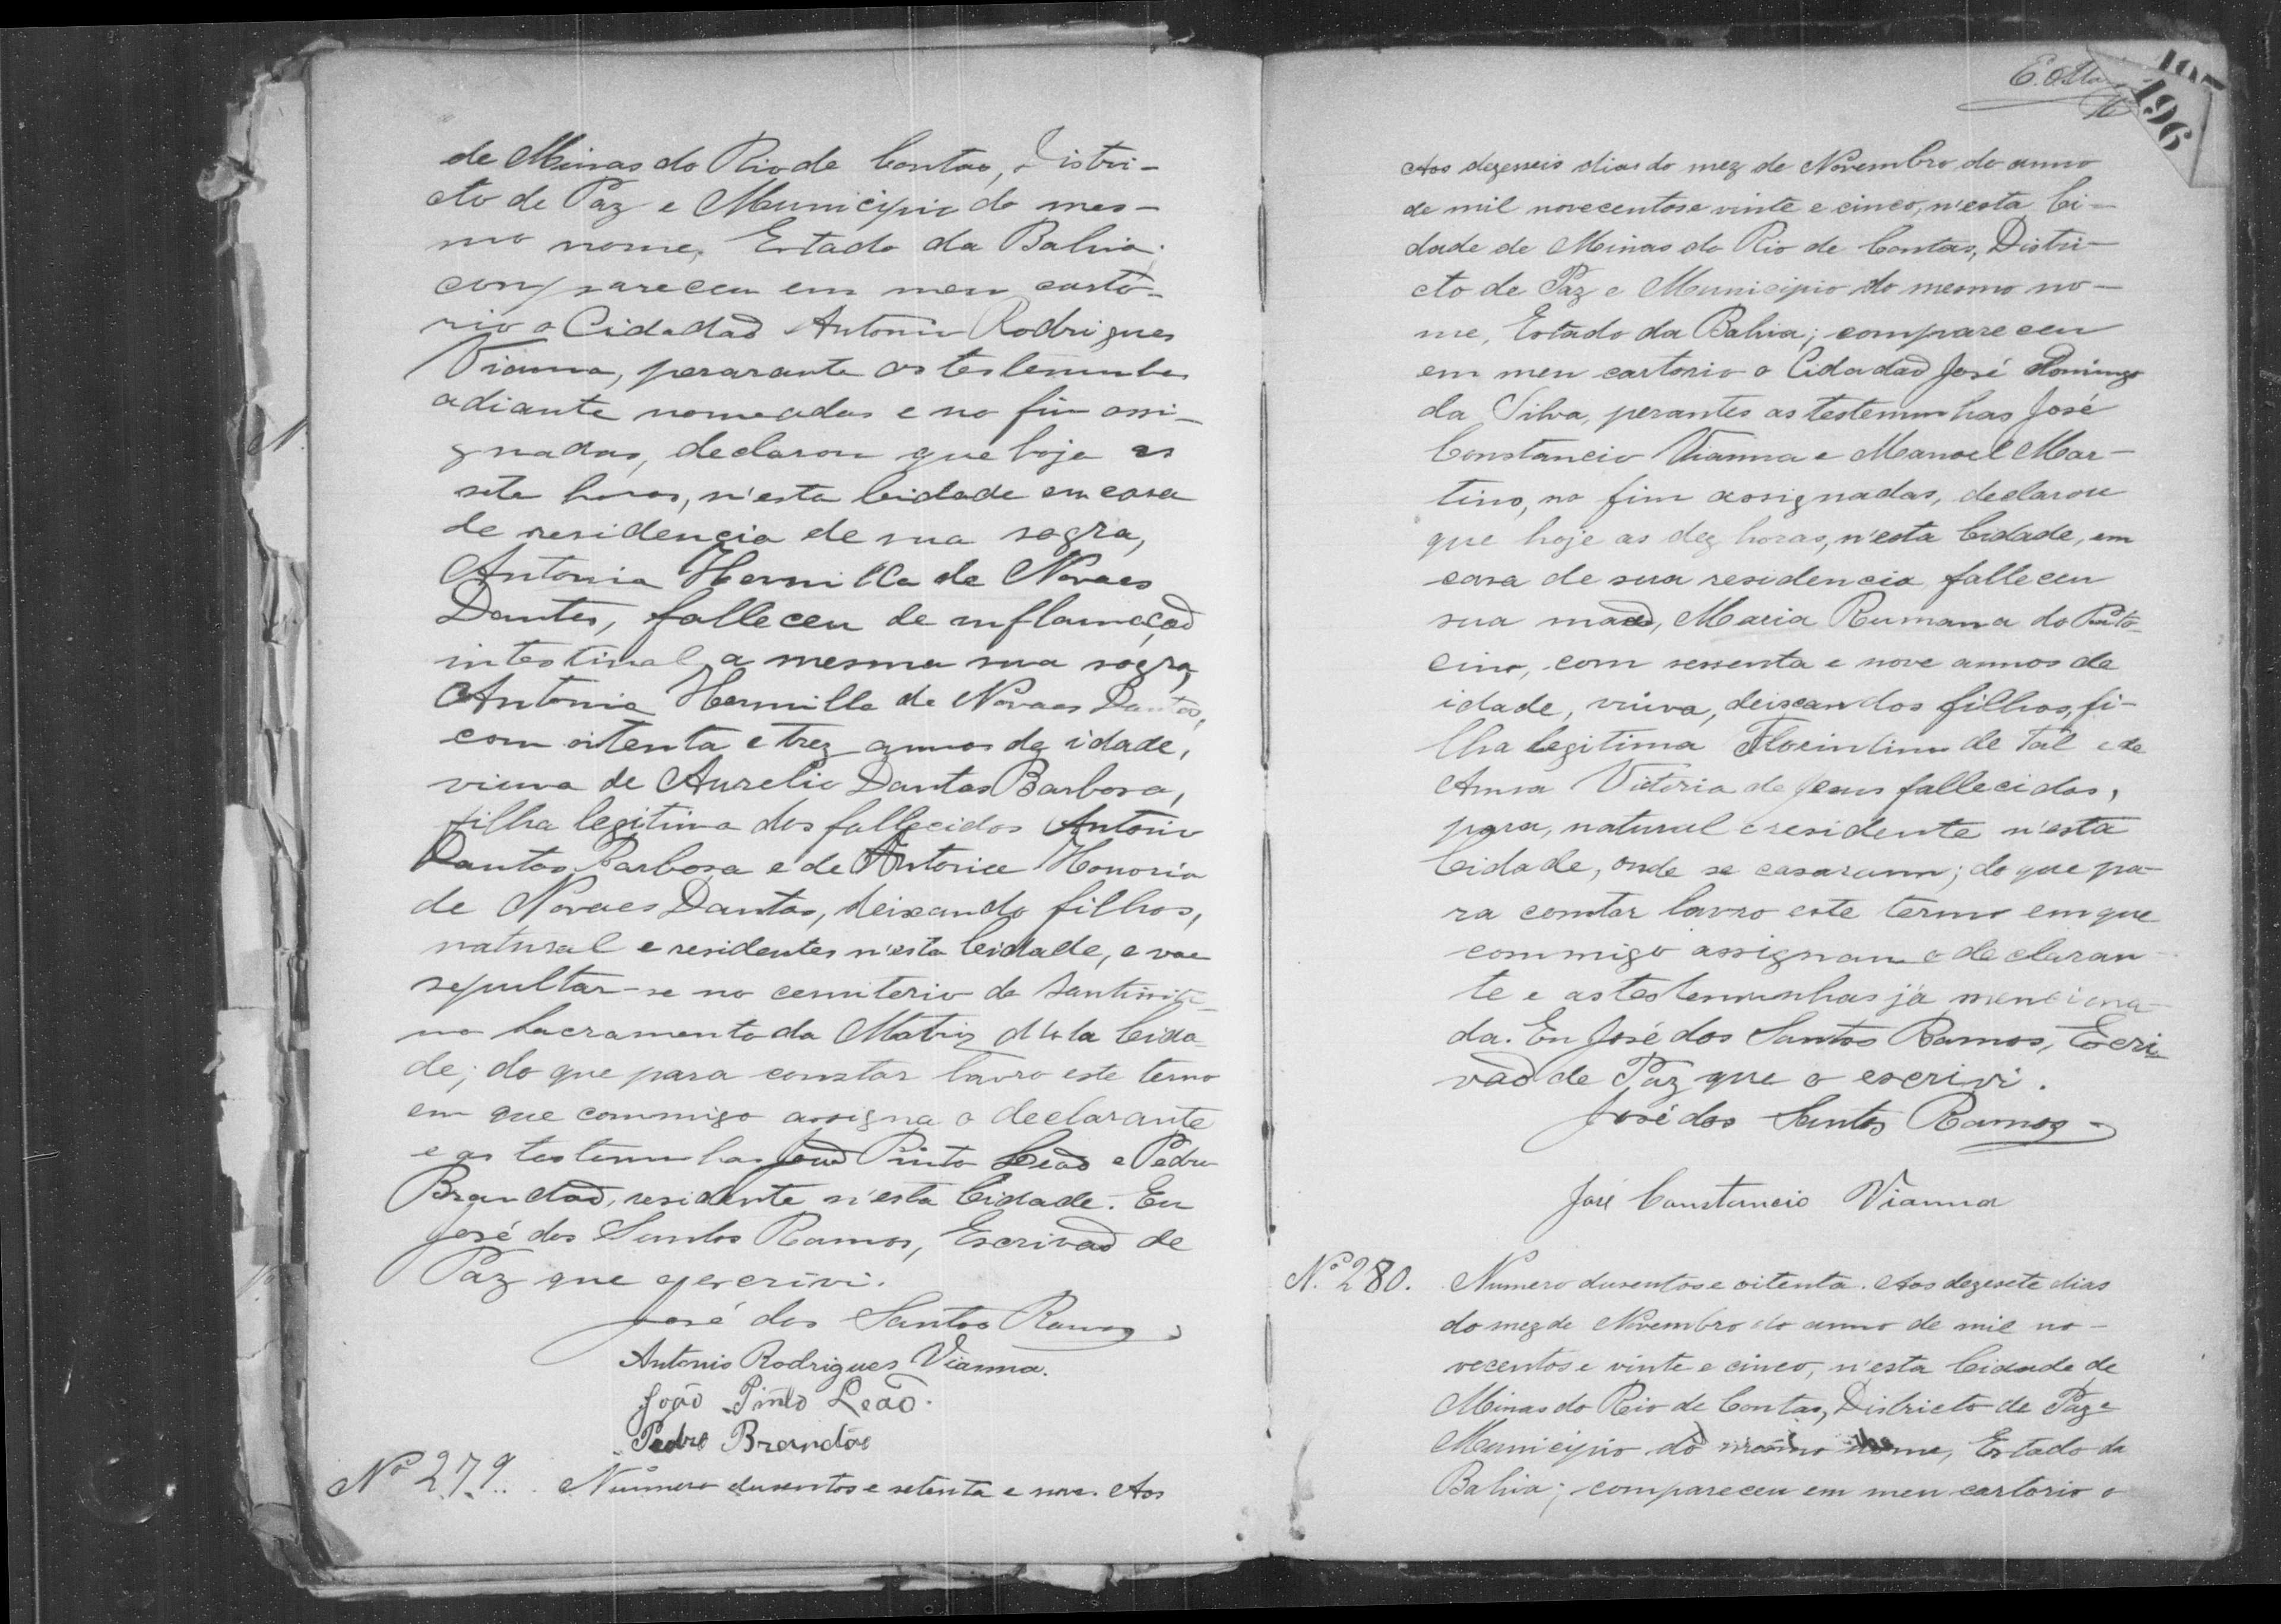 de Minas do Rio de Contas, Distri-
cto de Paz e Municipio do mes-
mo nome, Estado da Bahia;
compareceu em meu carto-
rio o Cidadaõ Antonio Rodrigues
Vianna, perarante as testemunhas
adiante nomeadas e no fim assi-
gnadas, declarou que hoje as
sete horas, n'esta Cidade em casa
de residencia de sua sogra,
Antonia Hermilla de Novaes
Dantes, falleceu de inflamaçaõ
intestinal a mesma sua sogra,
Antonia Hermilla de Novaes Dantas,
com oitenta e trez annos de idade,
viuva de Aurelio Dantas Barbosa,
filha legitima dos fallecidos Antonio
Dantas Barbosa e de Antonia Honoria
de Novaes Dantas, deixando filhos,
natural e residentes n'esta Cidade, e vae
sepultar-se no cemiterio do Santissi-
mo Sacramento da Matriz d'esta Cida-
de; do que para constar lavro este termo
em que commigo assigna o declarante
e as testemunhas Joaõ Pinto Leaõ e Pedro
Brandaõ, residente n'esta Cidade. Eu
José dos Santos Ramos, Escrivaõ de
Paz que o escrivi.
José dos Santos Ramos
Antonio Rodrigues Vianna.
Joaõ Pinto Leaõ.
Pedro Brandão
Nº 279. Numero dusentos e setenta e nove. Aos
196
Aos dezesseis dias do mez de Novembro do anno
de mil novecentos e vinte e cinco, n'esta Ci-
dade de Minas do Rio de Contas, Distri-
cto de Paz e Municipio do mesmo no-
me, Estado da Bahia; compareceu
em meu cartorio o Cidadaõ José Domingo
da Silva, perantes as testemunhas José
Constancio Vianna e Manoel Mar-
tino, no fim assignadas, declarou
que hoje as dez horas, n'esta Cidade, em
casa de sua residencia falleceu
sua maẽ, Maria Rumana do Patro-
cino, com sessenta e nove annos de
idade, viuva, deixandos filhos, fi-
lha legitima Florintino de Tal e de
Anna Victoria de Jesus fallecidos,
para, natural e residente n'esta
Cidade, onde se casaramn; do que pa-
ra comtar lavro este termo em que
commigo assignam o declaran-
te e as testemunhas já menciona-
da. Eu José dos Santos Ramos, Escri-
vaõ de Paz que o escrivi.
José dos Santos Ramos
José Constancio Vianna
Nº 280. Numero dusentos e oitenta. Aos dezesete dias
do mez de Novembro do anno de mil no-
vecentos e vinte e cinco, n'esta Cidade de
Minas do Rio de Contas, Districto de Paz e
Municipio do mesmo nome, Estado da
Bahia; compareceu em meu cartorio o